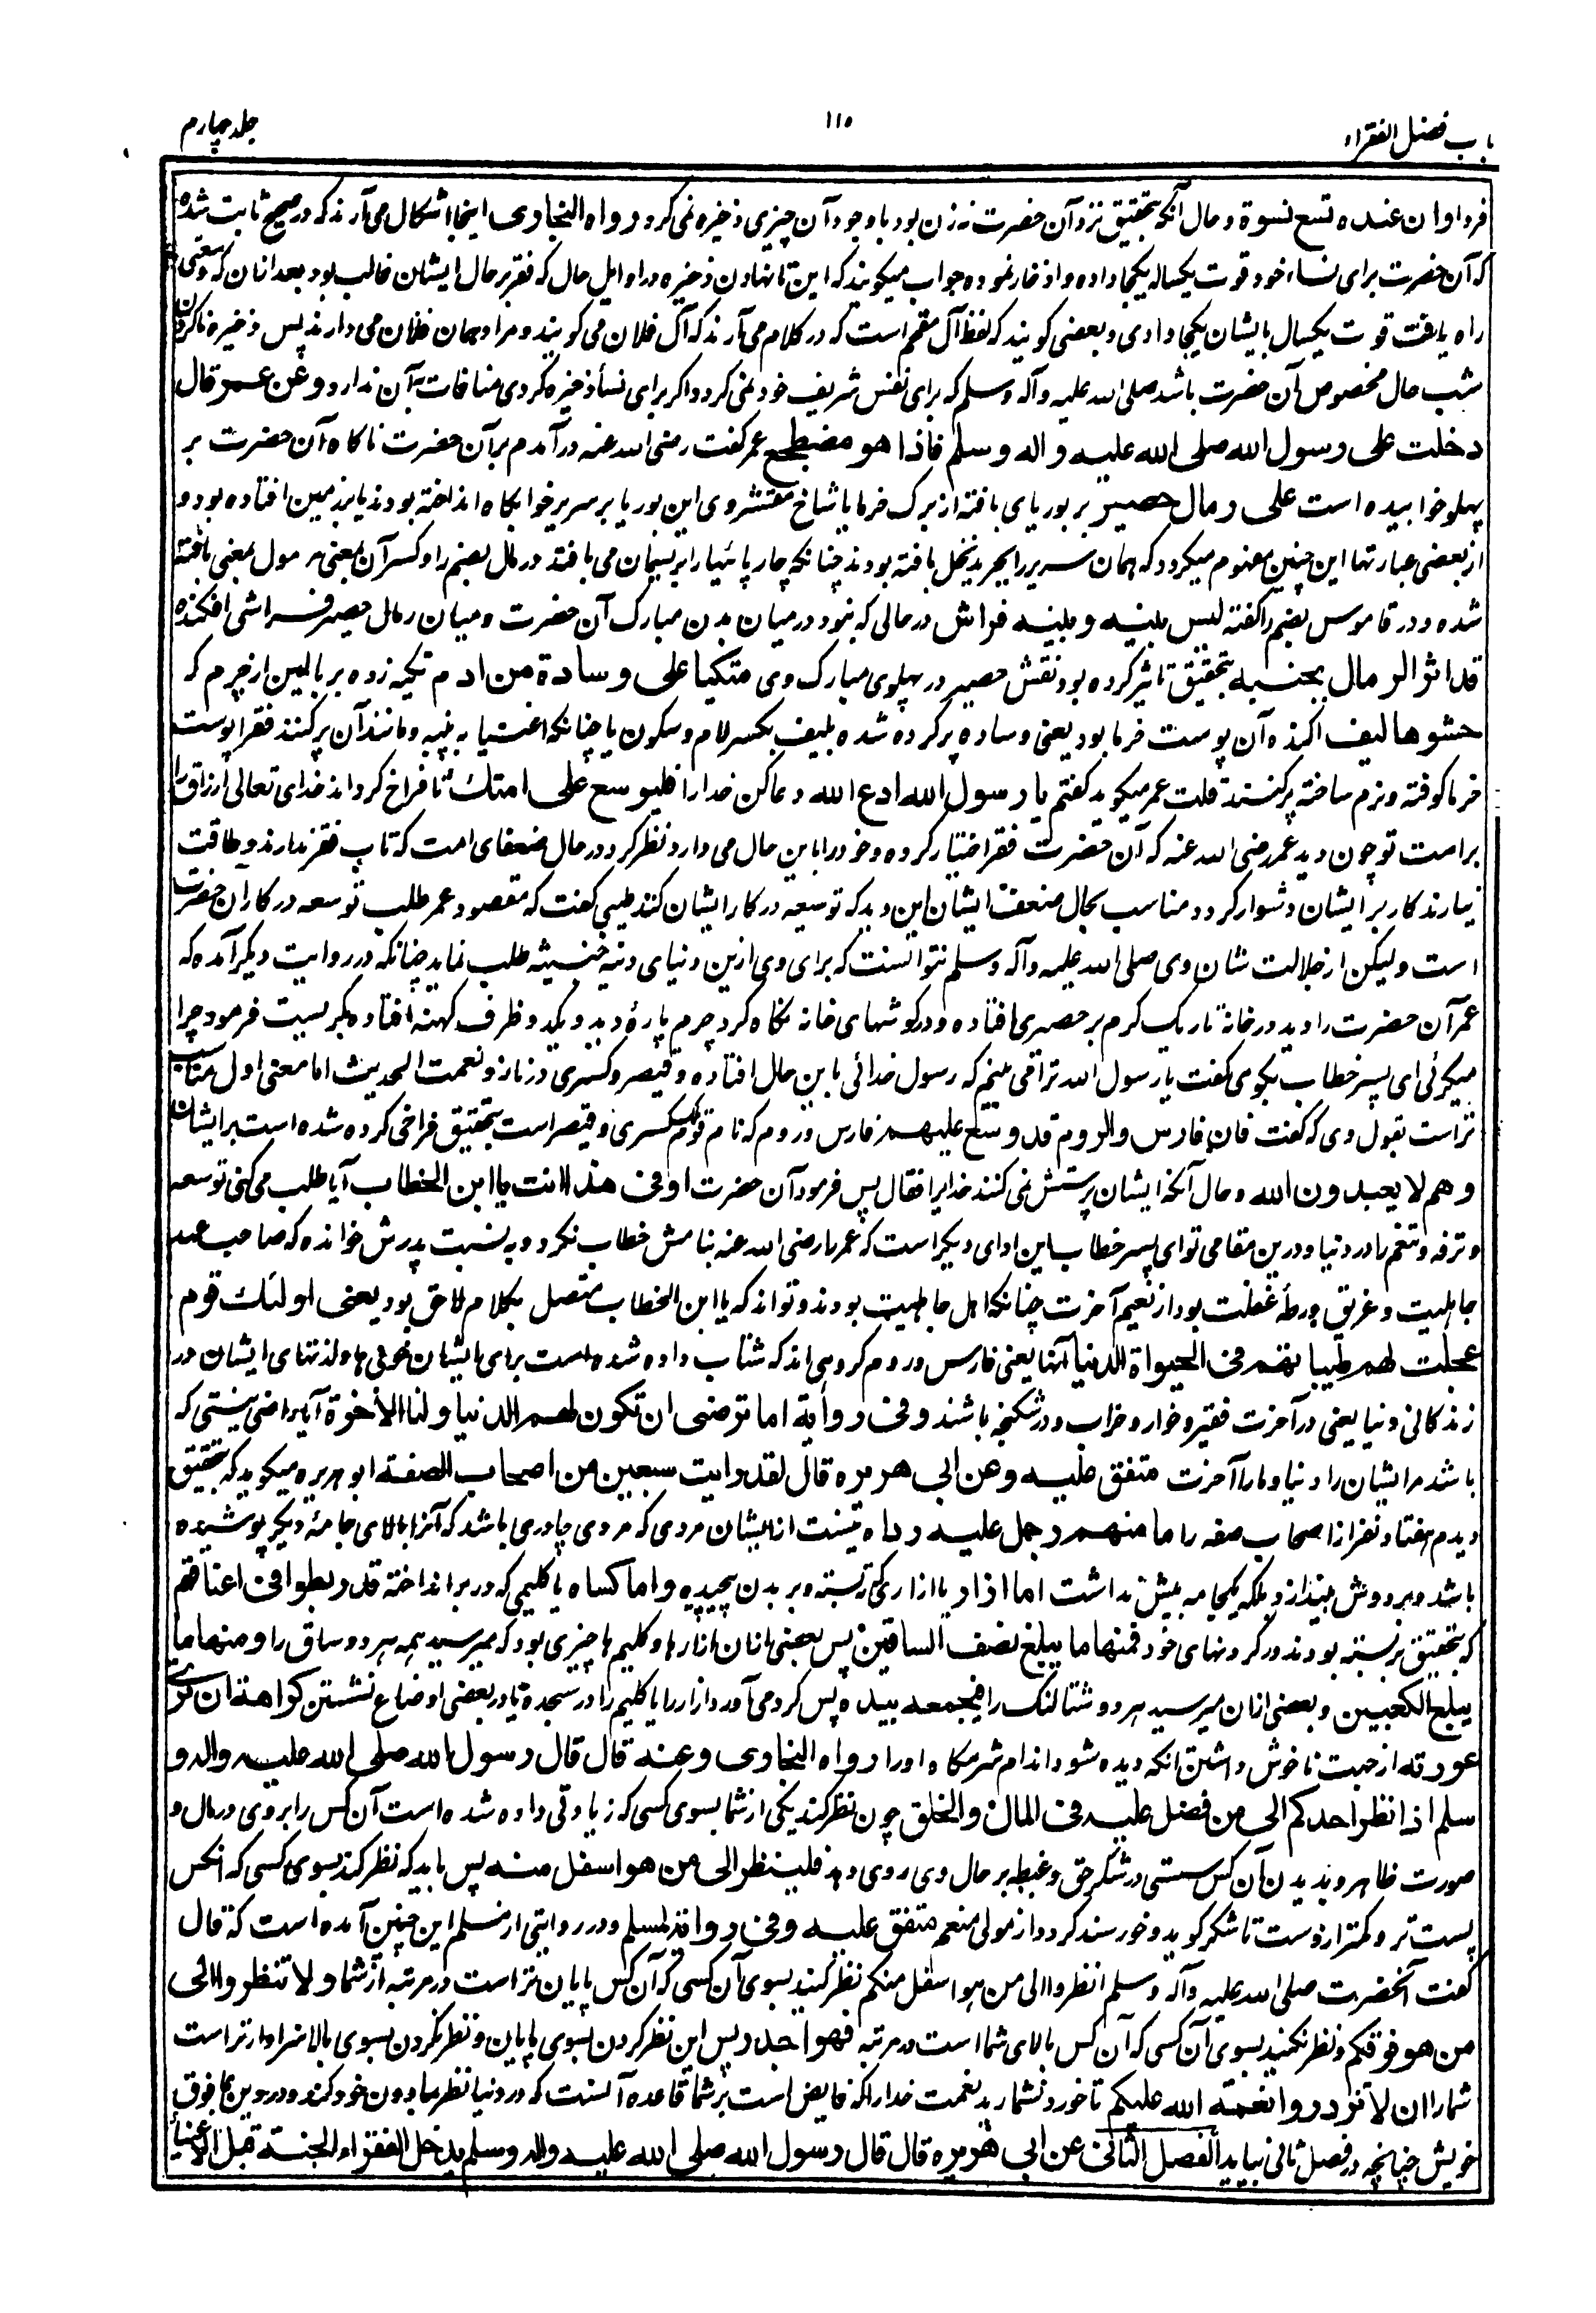 باب فضل الفقراء
۱۱۵
جلد چهارم
فردا وان عنده تسع نسوة و حال آنکه بتحقیق نزد آن حضرت نه زن بود با وجود آن چیزی ذخیره نمی کرد رواه البخاری اینجا اشکال می آرند که در صحیح ثابت شده
که آن حضرت برای نساء خود قوت یکساله یکجا داده و ادخار نموده جواب میگویند که این نانهادن ذخیره در اوایل حال که فقر بر حال ایشان غالب بود بعد ازان که وسعتی
راه یافت قوت یکسال بایشان یکجا دادی و بعضی گویند که لفظ آل مقحم است که در کلام می آرند که آل فلان می گویند و مراد همان فلان می دارند پس ذخیره ناکردن
شب حال مخصوص آن حضرت باشد صلی الله علیه وآله وسلم که برای نفس شریف خود نمی کرد و اگر برای نساء ذخیره کردی منافات به آن ندارد وعن عمر قال
دخلت علی رسول الله صلی الله علیه واله وسلم فاذا هو مضطجع عمر گفت رضی الله عنه درآمدم برآن حضرت ناگاه آن حضرت بر
پهلو خوابیده است علی رمال حصیر بر بوریای بافته از برگ خرما یا شاخ منقشر وی این بوریا بر سریر خوابگاه انداخته بودند یا بر زمین افتاده بود و
از بعضی عبارتها این چنین مفهوم میگردد که همان سریر را بجرید نخل بافته بودند چنانکه چارپائیها را بریسمان می بافند و رمال بضم را و کسر آن بمعنی مرمول بمعنی بافته
شده و در قاموس بضم را گفته لیس بینه و بینه فراش در حالی که نبود درمیان بدن مبارک آن حضرت و میان رمال حصیر فراشی افکنده
قد اثر الرمال بجنبه بتحقیق تاثیر کرده بود نقش حصیر در پهلوی مبارک وی متکیا علی وسادة من ادم تکیه زده بر بالین از چرم که
حشوها لیف اکنده آن پوست خرما بود یعنی وساده پر کرده شده بلیف بکسر لام و سکون یا چنانکه اغنیا به پنبه و مانند آن پر کنند فقرا پوست
خرما کوفته و نرم ساخته پر کنند قلت عمر میگوید گفتم یا رسول الله ادع الله دعا کن خدا را فلیوسع علی امتک تا فراخ گرداند خدای تعالی ارزاق را
بر امت تو چون دید عمر رضی الله عنه که آن حضرت فقر اختیار کرده و خود را باین حال می دارد نظر کرد در حال ضعفای امت که تاب فقر ندارند و طاقت
نیارند کار بر ایشان دشوار گردد مناسب بحال ضعف ایشان این دید که توسیعه در کار ایشان کنند طیبی گفت که مقصود عمر طلب توسعه در کار آن حضرت
است ولیکن از جلالت شان وی صلی الله علیه وآله وسلم نتوانست که برای وی ازین دنیای دنیه خسیسه طلب نماید چنانکه در روایت دیگر آمده که
عمر آن حضرت را دید در خانهٔ تاریک گرم بر حصیری افتاده و در گوشهای خانه نگاه کرد چرم پارهٔ دید و یکدو ظرف کهنه افتاده بگریست فرمود چرا
میگرئی ای پسر خطاب بگوی گفت یا رسول الله ترا می بینم که رسول خدائی باین حال افتاده و قیصر و کسری در ناز و نعمت الحدیث اما معنی اول مناسب
تر است بقول وی که گفت فان فارس والروم قد وسع علیهم فارس و روم که نام قوم کسری و قیصر است بتحقیق فراخی کرده شده است بر ایشان
وهم لا یعبدون الله و حال آنکه ایشان پرستش نمی کنند خدا را فقال پس فرمود آن حضرت اوفی هذا انت یا ابن الخطاب آیا طلب می کنی توسعه
و ترفه و تنعم را در دنیا و درین مقامی تو ای پسر خطاب این ادای دیگر است که عمر را رضی الله عنه بنامش خطاب نکرد و به نسبت پدرش خوانده که صاحب عهد
جاهلیت و غریق ورطهٔ غفلت بود از نعیم آخرت چنانکه اهل جاهلیت بودند و تواند که یا ابن الخطاب متصل بکلام لاحق بود یعنی اولئک قوم
عجلت لهم طیباتهم فی الحیواة الدنیا آنها یعنی فارس و روم گروهی اند که شتاب داده شده است برای ایشان خوشی ها و لذتهای ایشان در
زندگانی دنیا یعنی در آخرت فقیر و خوار و خراب و در شکنجه باشند وفی روایة اما ترضی ان تکون لهم الدنیا ولنا الآخرة آیا راضی نیستی که
باشد مر ایشان را دنیا و ما را آخرت متفق علیه وعن ابی هریره قال لقد رایت سبعین من اصحاب الصفة ابوهریره میگوید که بتحقیق
دیدم هفتاد نفر از اصحاب صفه را ما منهم رجل علیه رداء نیست از ایشان مردی که مر وی چادری باشد که آنرا بالای جامهٔ دیگر پوشیده
باشد و بر دوش بیندازد بلکه یکجامه بیش نداشت اما ازار یا ازاری که بسته و بر بدن پیچیده واما کساء یا گلیمی که در بر انداخته قد ربطوا فی اعناقهم
که بتحقیق بر بسته بودند در گردنهای خود فمنها ما یبلغ نصف الساقین پس بعضی ازان ازارها و گلیم ها چیزی بود که میرسید نیمه هر دو ساق را ومنها ما
یبلغ الکعبین و بعضی ازان میرسید هر دو شتالنگ را فیجمعه بیده پس گرد می آورد ازار را یا گلیم را در سجده یا در بعضی اوضاع نشستن کراهة ان تری
عورته از جهت ناخوش داشتن آنکه دیده شود اندام شرمگاه او را رواه البخاری وعنه قال قال رسول الله صلی الله علیه واله و
سلم اذا نظر احدکم الی من فضل علیه فی المال والخلق چون نظر کند یکی از شما بسوی کسی که زیادتی داده شده است آن کس را بر وی در مال و
صورت ظاهر و بدیدن آن کس سستی در شکر حق و غبطه بر حال وی روی دهد فلینظر الی من هو اسفل منه پس باید که نظر کند بسوی کسی که آنکس
پست تر و کمتر از وست تا شکر گوید و خورسند گردد از مولی منعم متفق علیه وفی روایة لمسلم و در روایتی از مسلم این چنین آمده است که قال
گفت آنحضرت صلی الله علیه وآله وسلم انظروا الی من هو اسفل منکم نظر کنید بسوی آن کسی که آن کس پایان تر است در مرتبه از شما ولا تنظروا الی
من هو فوقکم و نظر نکنید بسوی آن کسی که آن کس بالای شما است در مرتبه فهو اجدر پس این نظر کردن بسوی پایان و نظر نکردن بسوی بالا سزاوارتر است
شما را ان لا تزدروا نعمة الله علیکم تا خورد نشمارید نعمت خدا را که فایض است بر شما قاعده آنست که در دنیا نظر بما دون خود کند و در دین بما فوق
خویش چنانچه در فصل ثانی بیاید الفصل الثانی عن ابی هریره قال قال رسول الله صلی الله علیه واله وسلم یدخل الفقراء الجنة قبل الاغنیاء